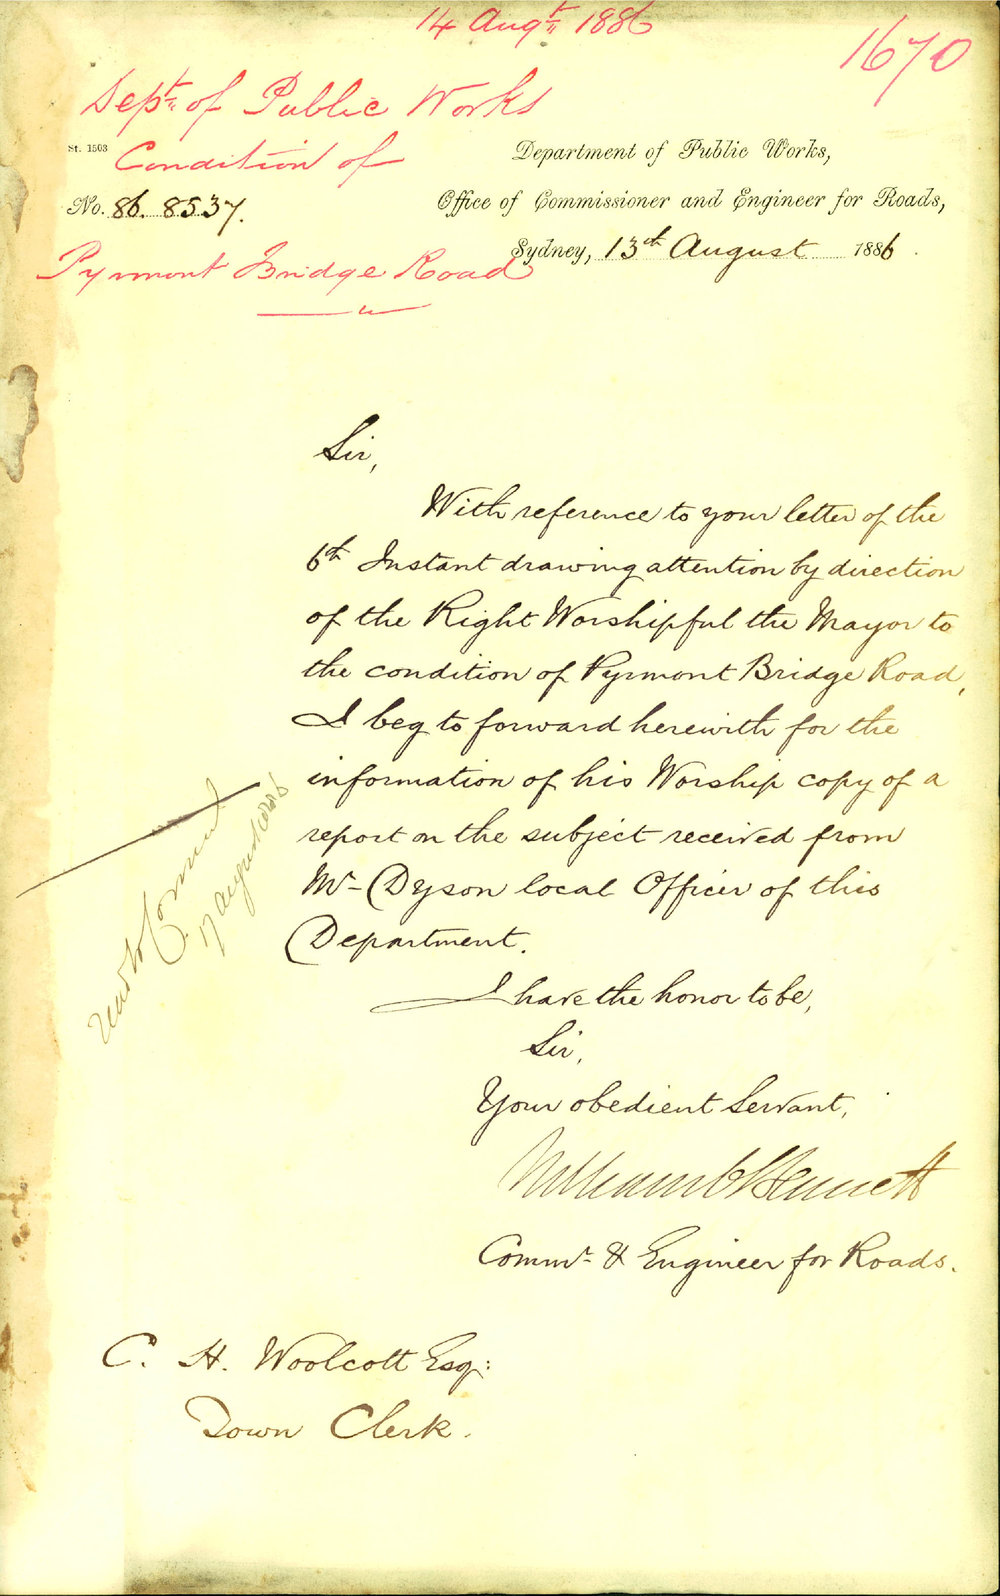 14 Augt 1886
1670
Dept of Public Works
St. 1503
Condition of
Department of Public Works,
No. 86. 8537.
Office of Commissioner and Engineer for Roads,
Sydney, 13th August 1886.
Pyrmont Bridge Road
Sir,
With reference to your letter of the
6th Instant drawing attention by direction
of the Right Worshipful the Mayor to
the condition of Pyrmont Bridge Road,
I beg to forward herewith for the
information of his Worship copy of a
report on the subject received from
Mr Dyson local Officer of this
Department.
17 August 1886
I have the honor to be,
Sir,
Your obedient Servant,
William C Bennett
Commr & Engineer for Roads.
C. H. Woolcott Esq:
Town Clerk.